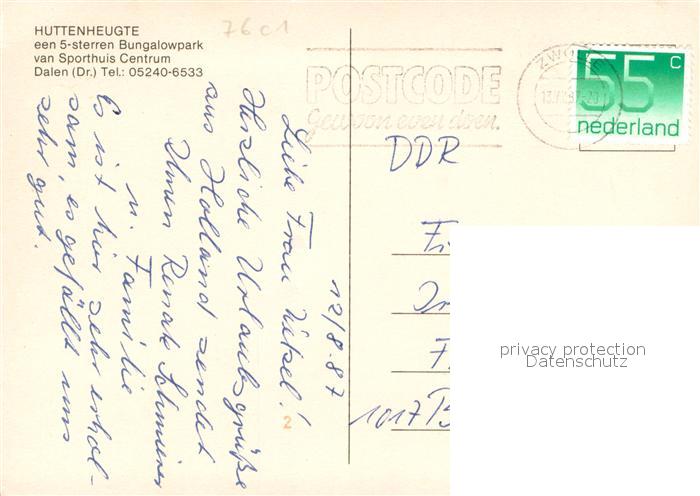 HUTTENHEUGTE
een 5-sterren Bungalowpark
van Sporthuis Centrum
Dalen (Dr.) Tel.: 05240-6533
76c1
POSTCODE
Gewoon even doen.
ZWO
55 c
nederland
12/8-87
Liebe Frau
Herzliche Urlaubsgrüße
aus Holland sendet
Ihnen Renate
u. Familie
Es ist hier sehr erhol-
sam, es gefällt uns
sehr gut.
2
DDR
1017 B
privacy protection
Datenschutz